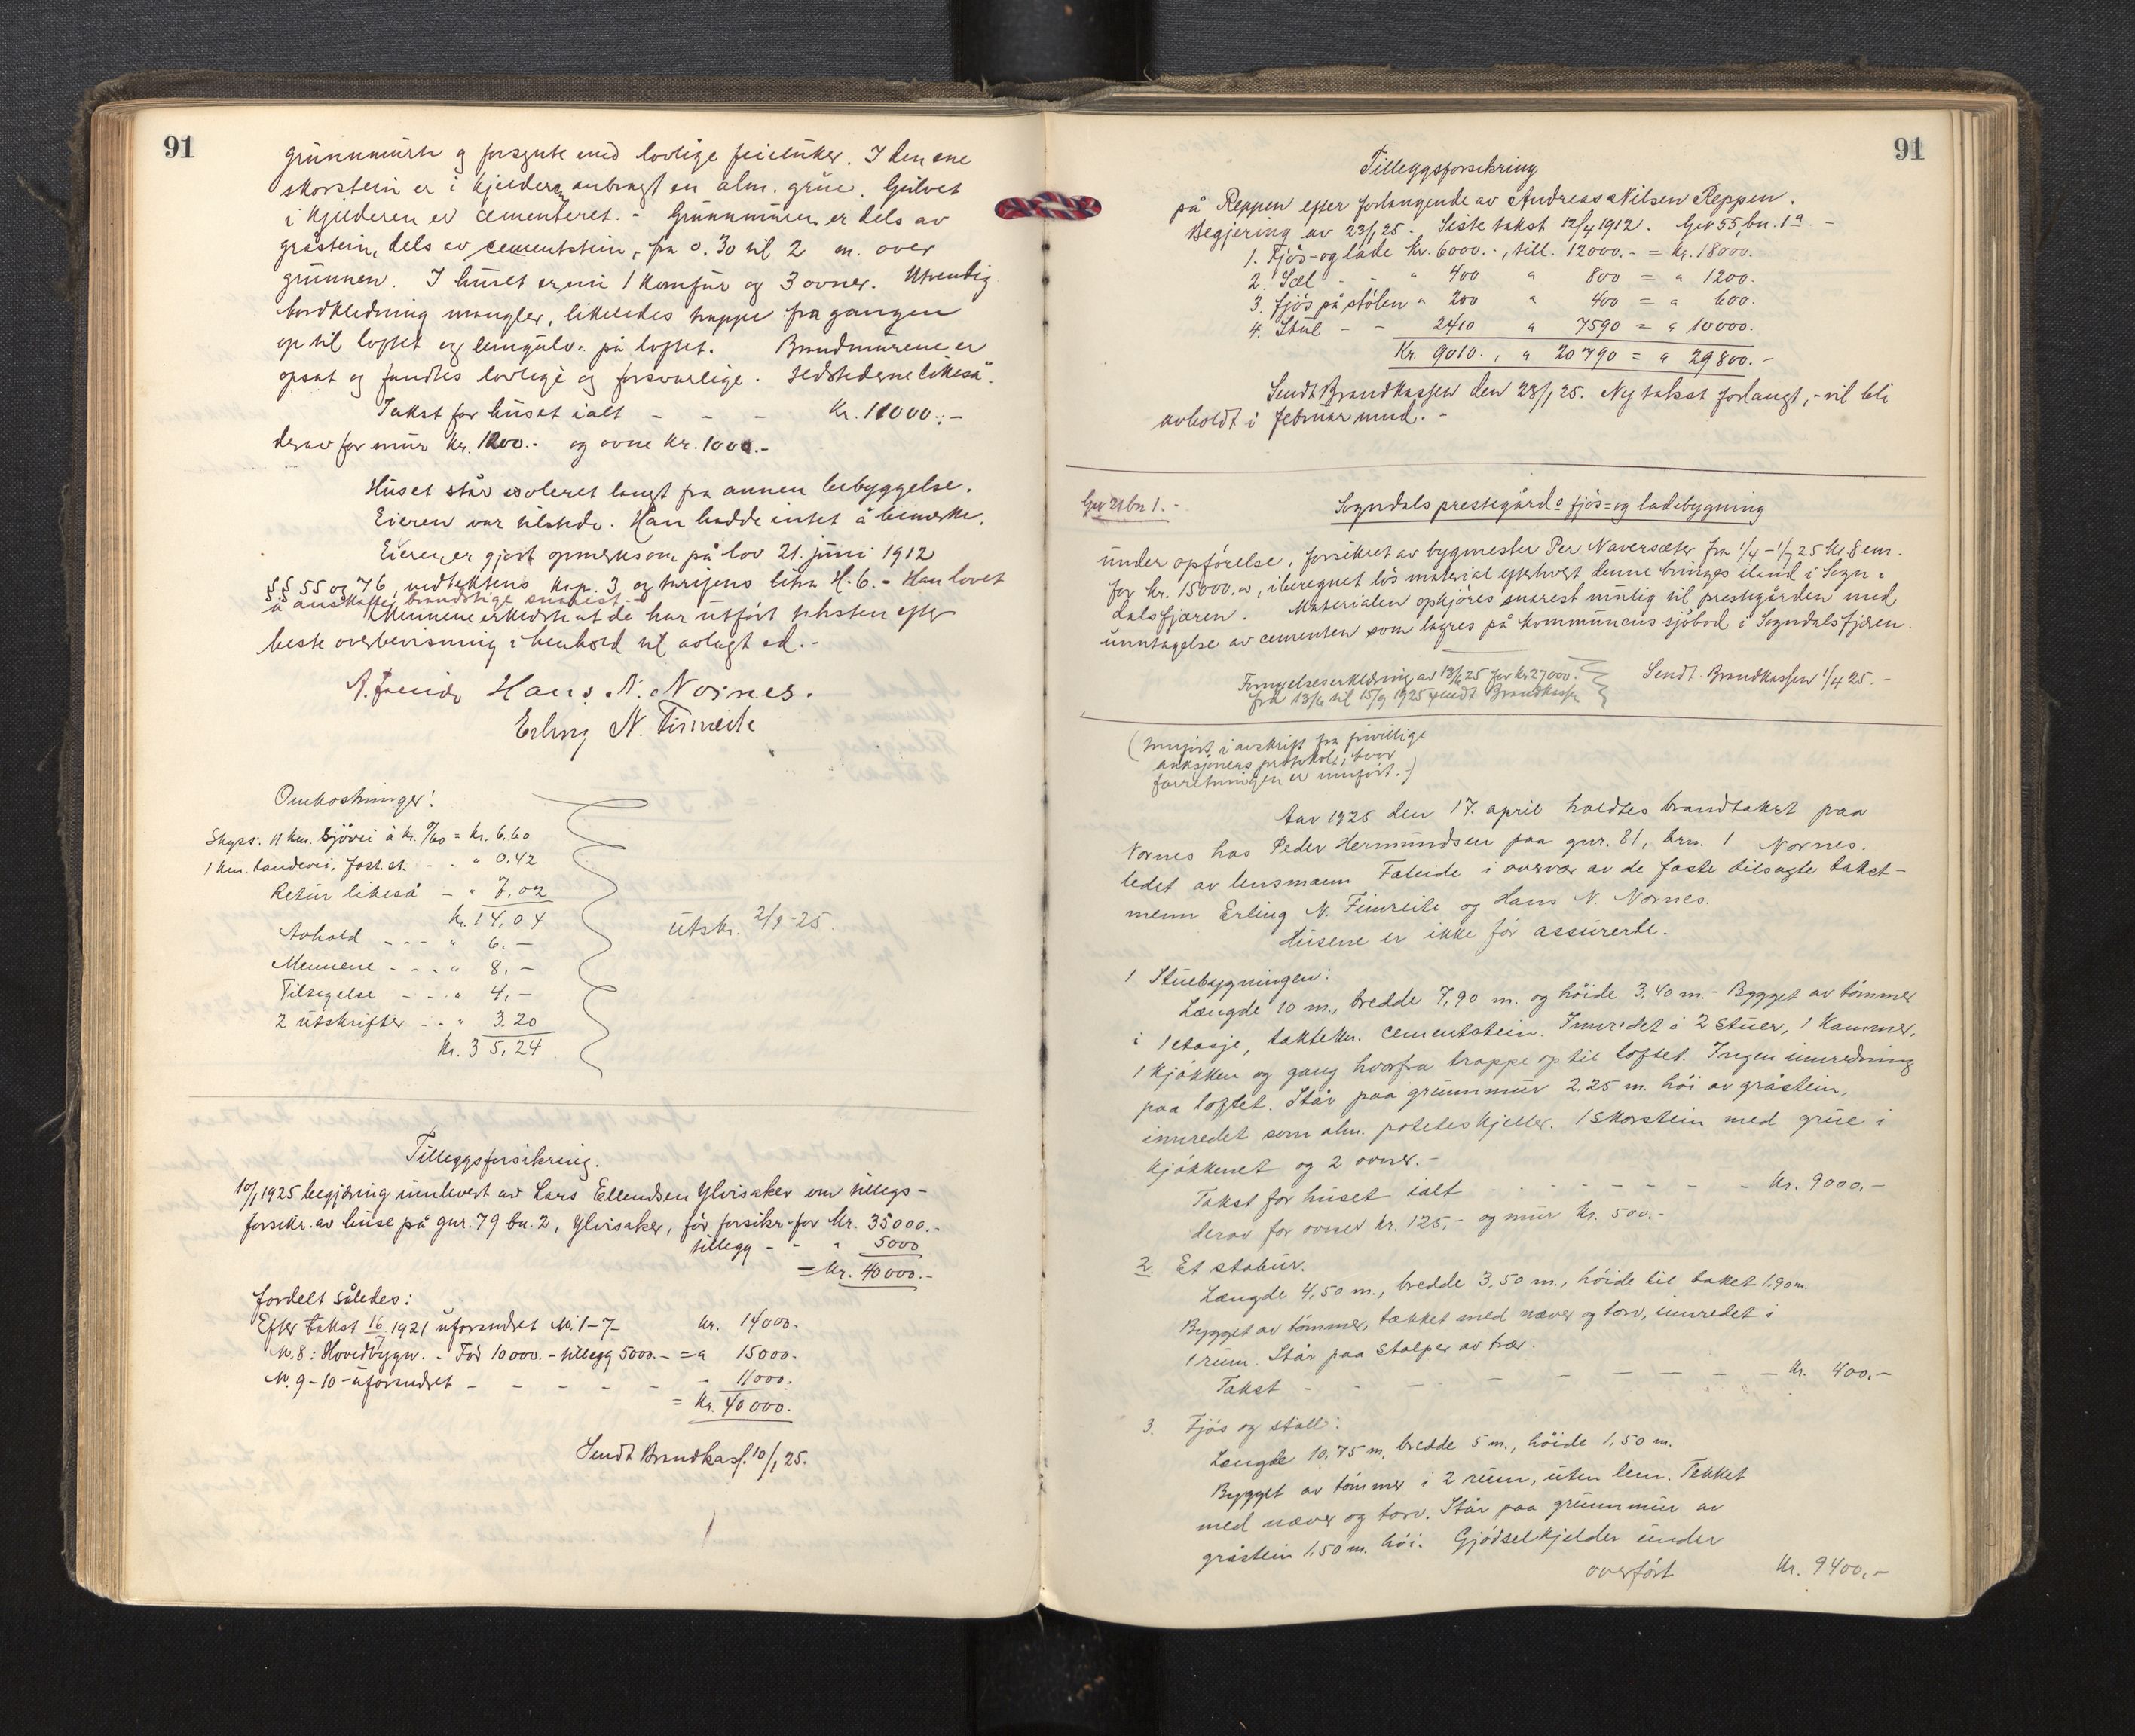 91
grunnmurte og forsynte med lovlige feieluker. I den ene
skorstein er i kjelderen anbragt en alm. grue. Gulvet
i kjelderen er cementeret. - Grunnmuren er dels av
gråstein, dels av cementstein, fra 0.30 til 2 m. over
grunnen. I huset er ny 1 komfur og 3 ovner. Utvendig
bordkledning mangler, likeledes trappe fra gangen
op til loftet og lemgulv på loftet. Brandmurene er
opsat og fandtes lovlige og forsvarlige. Ildstederne likeså.
Takst for huset ialt - - - Kr. 11000.-
derav for mur kr. 1200.- og ovne kr. 1000.-
Huset står isoleret langt fra annen bebyggelse.
Eieren var tilstede. Han hadde intet å bemerke.
Eieren er gjort opmerksom på lov 21. juni 1912
§§ 55 og 76, vedtektens kap. 3 og tarifens litra H. 6. - Han lovet
å anskaffe brandstige snarest.-
Mennene erklærte at de har utført taksten efter
beste overbevisning i henhold til avlagt ed.-
Hans N. Nornes.
Erling N. Fimreite
Omkostninger:
Skyss: 11 km. sjövei à kr. 0/60 = kr. 6.60
1 km. landevei, fast st. - - " 0.42
Retur likeså - " 7,02
kr. 14,04
Avhold - - - " 6.-
Mennene - - - " 8,-
Tilsigelse - - - " 4,-
2 utskrifter - - " 3.20
kr. 35,24.
utskr. 2/9-25.
Tilleggsforsikring.
10/1 1925 begjæring innlevert av Lars Ellendsen Ylvisaker om tillegs-
forsikr. av huse på gnr. 79 bn. 2, Ylvisaker, för forsikr. for kr. 35000.-
tillegg - - " 5000
= kr. 40000.-
fordelt således:
Efter takst 16/7 1921 uforandret No. 1-7 kr. 14000.-
No. 8: Hovedbygn. - För 10000.- tillegg 5000.- = " 15000.-
No. 9-10 - uforandret - - - - - " 11000.-
= kr. 40000.-
Sendt Brandkass. 10/1 25.
91
Tilleggsforsikring
på Reppen efter forlangende av Andreas Nilsen Reppen.
Begjering av 23/1 25. Siste takst 12/4 1912. Gnr 55, bn. 1a. -
1. Fjös- og lade kr. 6000.-, till. 12000.- = kr. 18000.
2. Sæl - - " 400 " 800 = " 1200.
3. Fjös på stölen " 200 " 400 = " 600.
4. Stue - - 2410 " 7590 = " 10000.
Kr. 9010., " 20790 = " 29800.-
Sendt Brandkassen den 28/1 25. Ny takst forlangt, - vil bli
avholdt i februar mnd. -
Gnr 21 bn 1. -
Sogndals prestegårds fjös- og ladebygning
under opförelse, forsikret av bygmester Per Naversæter fra 1/4 - 1/7 25 kl 8 em.
for kr. 15000.00, iberegnet lös material efterhvert denne bringes iland i Sogn-
dalsfjæren. Materialen opkjöres snarest mulig til prestegården med
unntagelse av cementen som lagres på kommunens sjöbod i Sogndalsfjæren.
Fornyelseserklæring av 13/6 25 for kr. 27000.-
fra 13/6 til 15/9 1925 sendt Brandkassen
Sendt Brandkassen 1/4 25. -
(Innfört i avskrift fra frivillige
auksjoners protokol, hvor
forretningen er innfört.-)
Aar 1925 den 17. april holdtes brandtakst paa
Nornes hos Peder Hermundsen paa gnr. 81, brn. 1 Nornes.
ledet av lensmann Faleide i overvær av de faste tilsagte takst-
menn Erling N. Fimreite og Hans N. Nornes.
Husene er ikke för assurerte.
1. Stuebygningen:
Længde 10 m., bredde 7,90 m. og höide 3,40 m. - Bygget av tömmer
i 1 etasje, taktekn. cementstein. Innredet i 2 stuer, 1 kammer,
1 kjökken og gang hvorfra trappe op til loftet. Ingen innredning
paa loftet. Står paa grunnmur 2.25 m. höi av gråstein,
innredet som alm. poteteskjeller. 1 skorstein med grue i
kjökkenet og 2 ovner.-
Takst for huset ialt - - - - - - - Kr. 9000.-
derav for ovner kr. 125,- og mur kr. 500.-
2. Et stabur.
Længde 4,50 m., bredde 3,50 m., höide til taket 1.90 m.
Bygget av tömmer, tækket med næver og torv, innredet i
1 rum. Står paa stolper av træ.
Takst - - - - - - - - - Kr. 400.-
3. Fjös og stall:
Længde 10,75 m, bredde 5 m., höide 1,50 m.
Bygget av tömmer i 2 rum, uten lem. Tekket
med næver og torv. Står paa grunnmur av
gråstein 1,50 m. höi. Gjödselkjelder under
overfört Kr. 9400,-